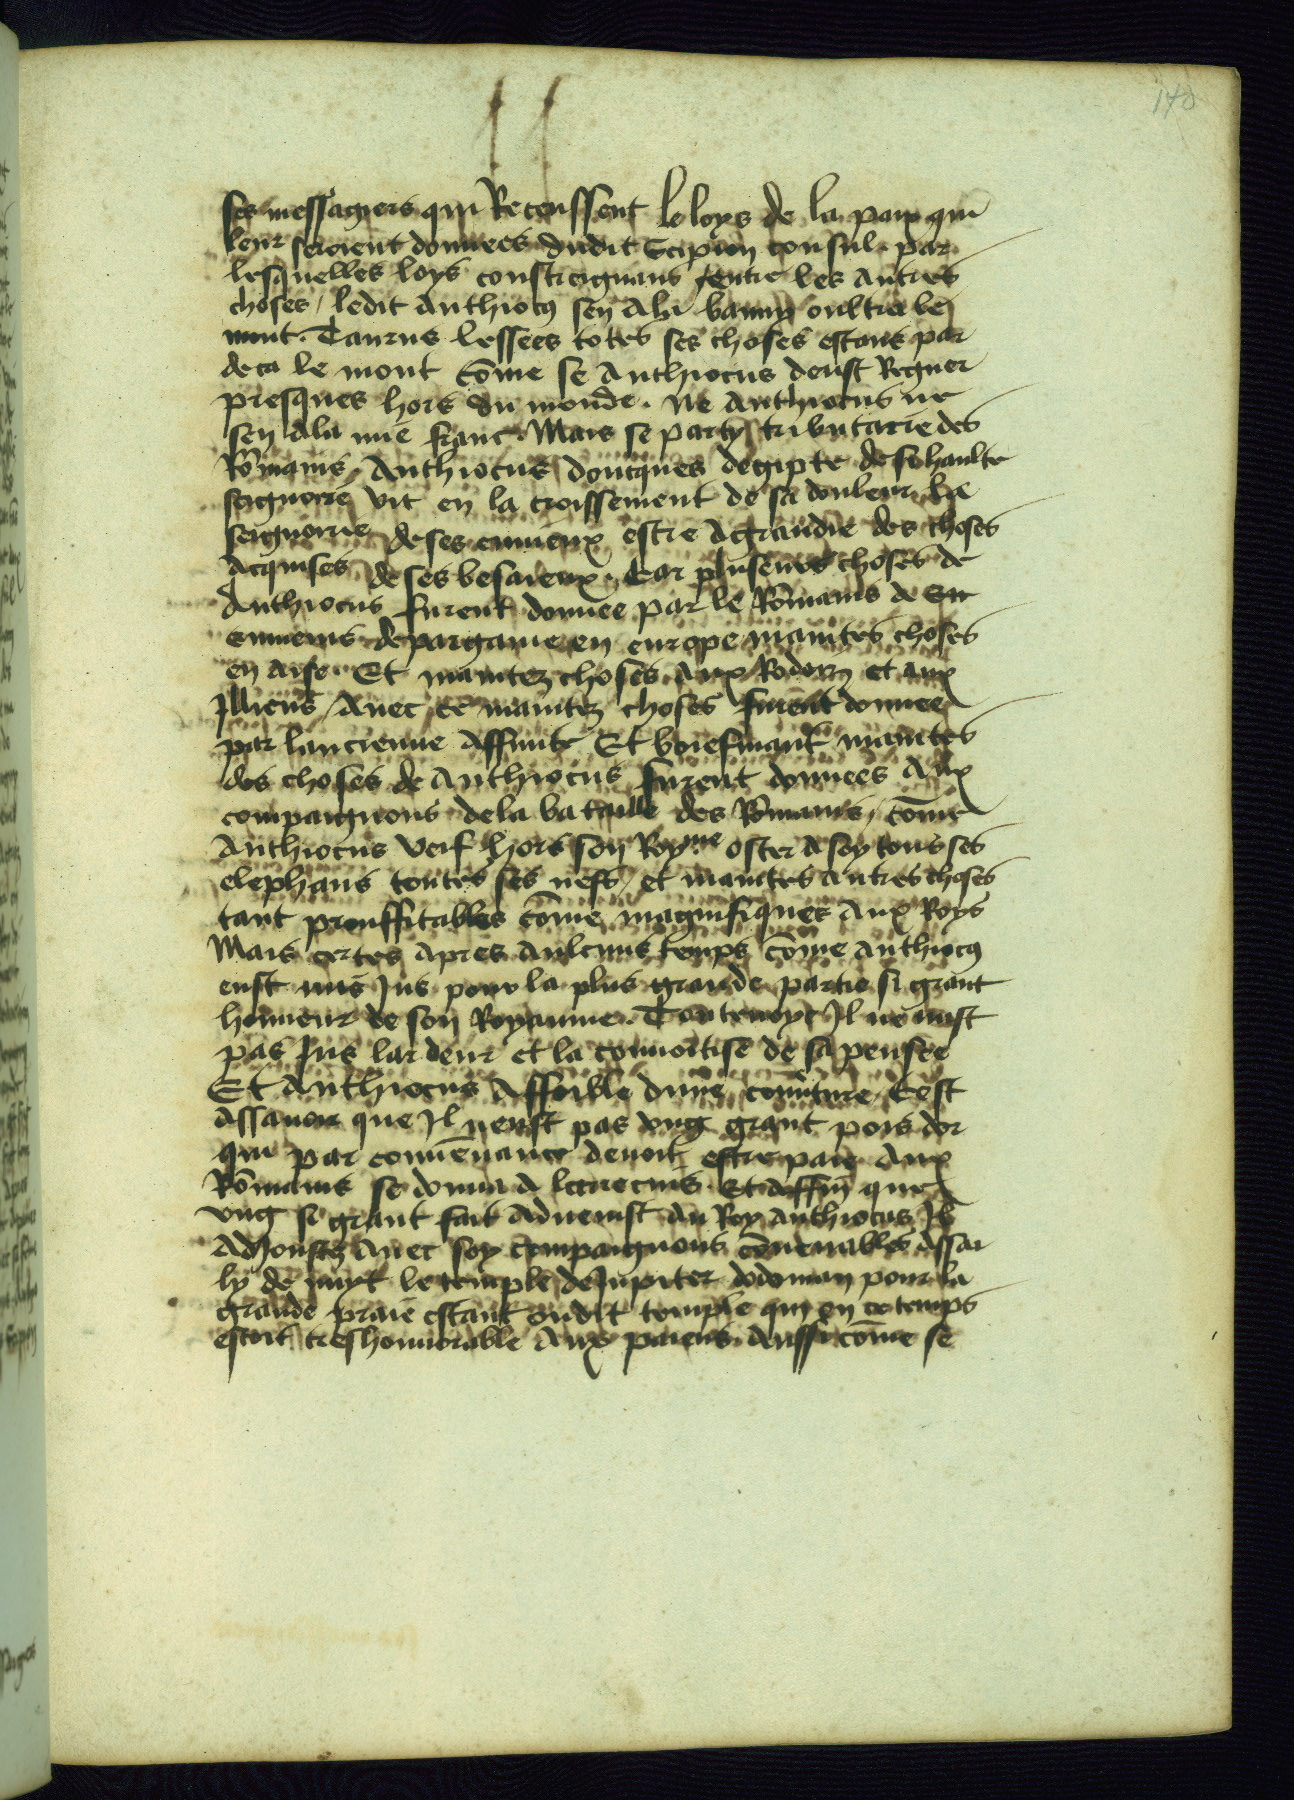 140
ses messagiers qui Receussent le loys de la paix qui
leur seroient donnees dudit Scipion consul par
lesquelles loys constreignans entre les autres
choses / ledit Anthiocus sen Ala banny oultre le
mont. Taurus lessees totes ses choses estans par
deca le mont cōme se Anthiocus deust Regner
presques hors du monde. Ne Anthiocus ne
sen Ala mie franc. Mais se party tributarie des
Rōmains. Anthiocus doncques degipte de si haulte
seignorie vit en la croissement de sa douleur La
seignorie de ses ennieux estre Agrandie des choses
Acquises de ses besaieux. Car pluseurs choses de
Anthiocus furent donnee par le Rōmains de
ennemis de pargame en europe maintes choses
en aise. Et maintez choses Aux Rodorz et aux
Jllicus / Avec ce maintez choses furent donnee
par lancienne Affinite Et briefmant maintes
des choses de Anthiocus furent donnees Aux
compaignons dela bataille des Rōmains / cōme
Anthiocus hors son Royme oster A soy tous ses
elephans toutes ses nefs / et maintes Autres choses
tant prouffitables cōme magnifiques Aux Roys
Mais certes Apres Aulcuns temps cōme anthiocus
eust mis Jus pour la plus grande partie si grant
honneur de son Royaume. Toutevoye Jl ne mist
pas Jus lardeur et la convoitise de sa pensee
Et Anthiocus Affoible dune Cest
Assavoir que Jl neust pas ung grant pois dor
qui par convēnance devoit estre paie Aux
Rōmains se donna A larrecins. Et Affin que
ung si grant fait Advenist Au Roy Anthiocus Jl
Adjoustez Avec soy compaignons cōvenables Assai
ly de nuyt le temple de Jupiter dodoman pour la
grande praie estant oudit temple qui en ce temps
estoit treshonnorable Aux paiens. Aussi cōme se